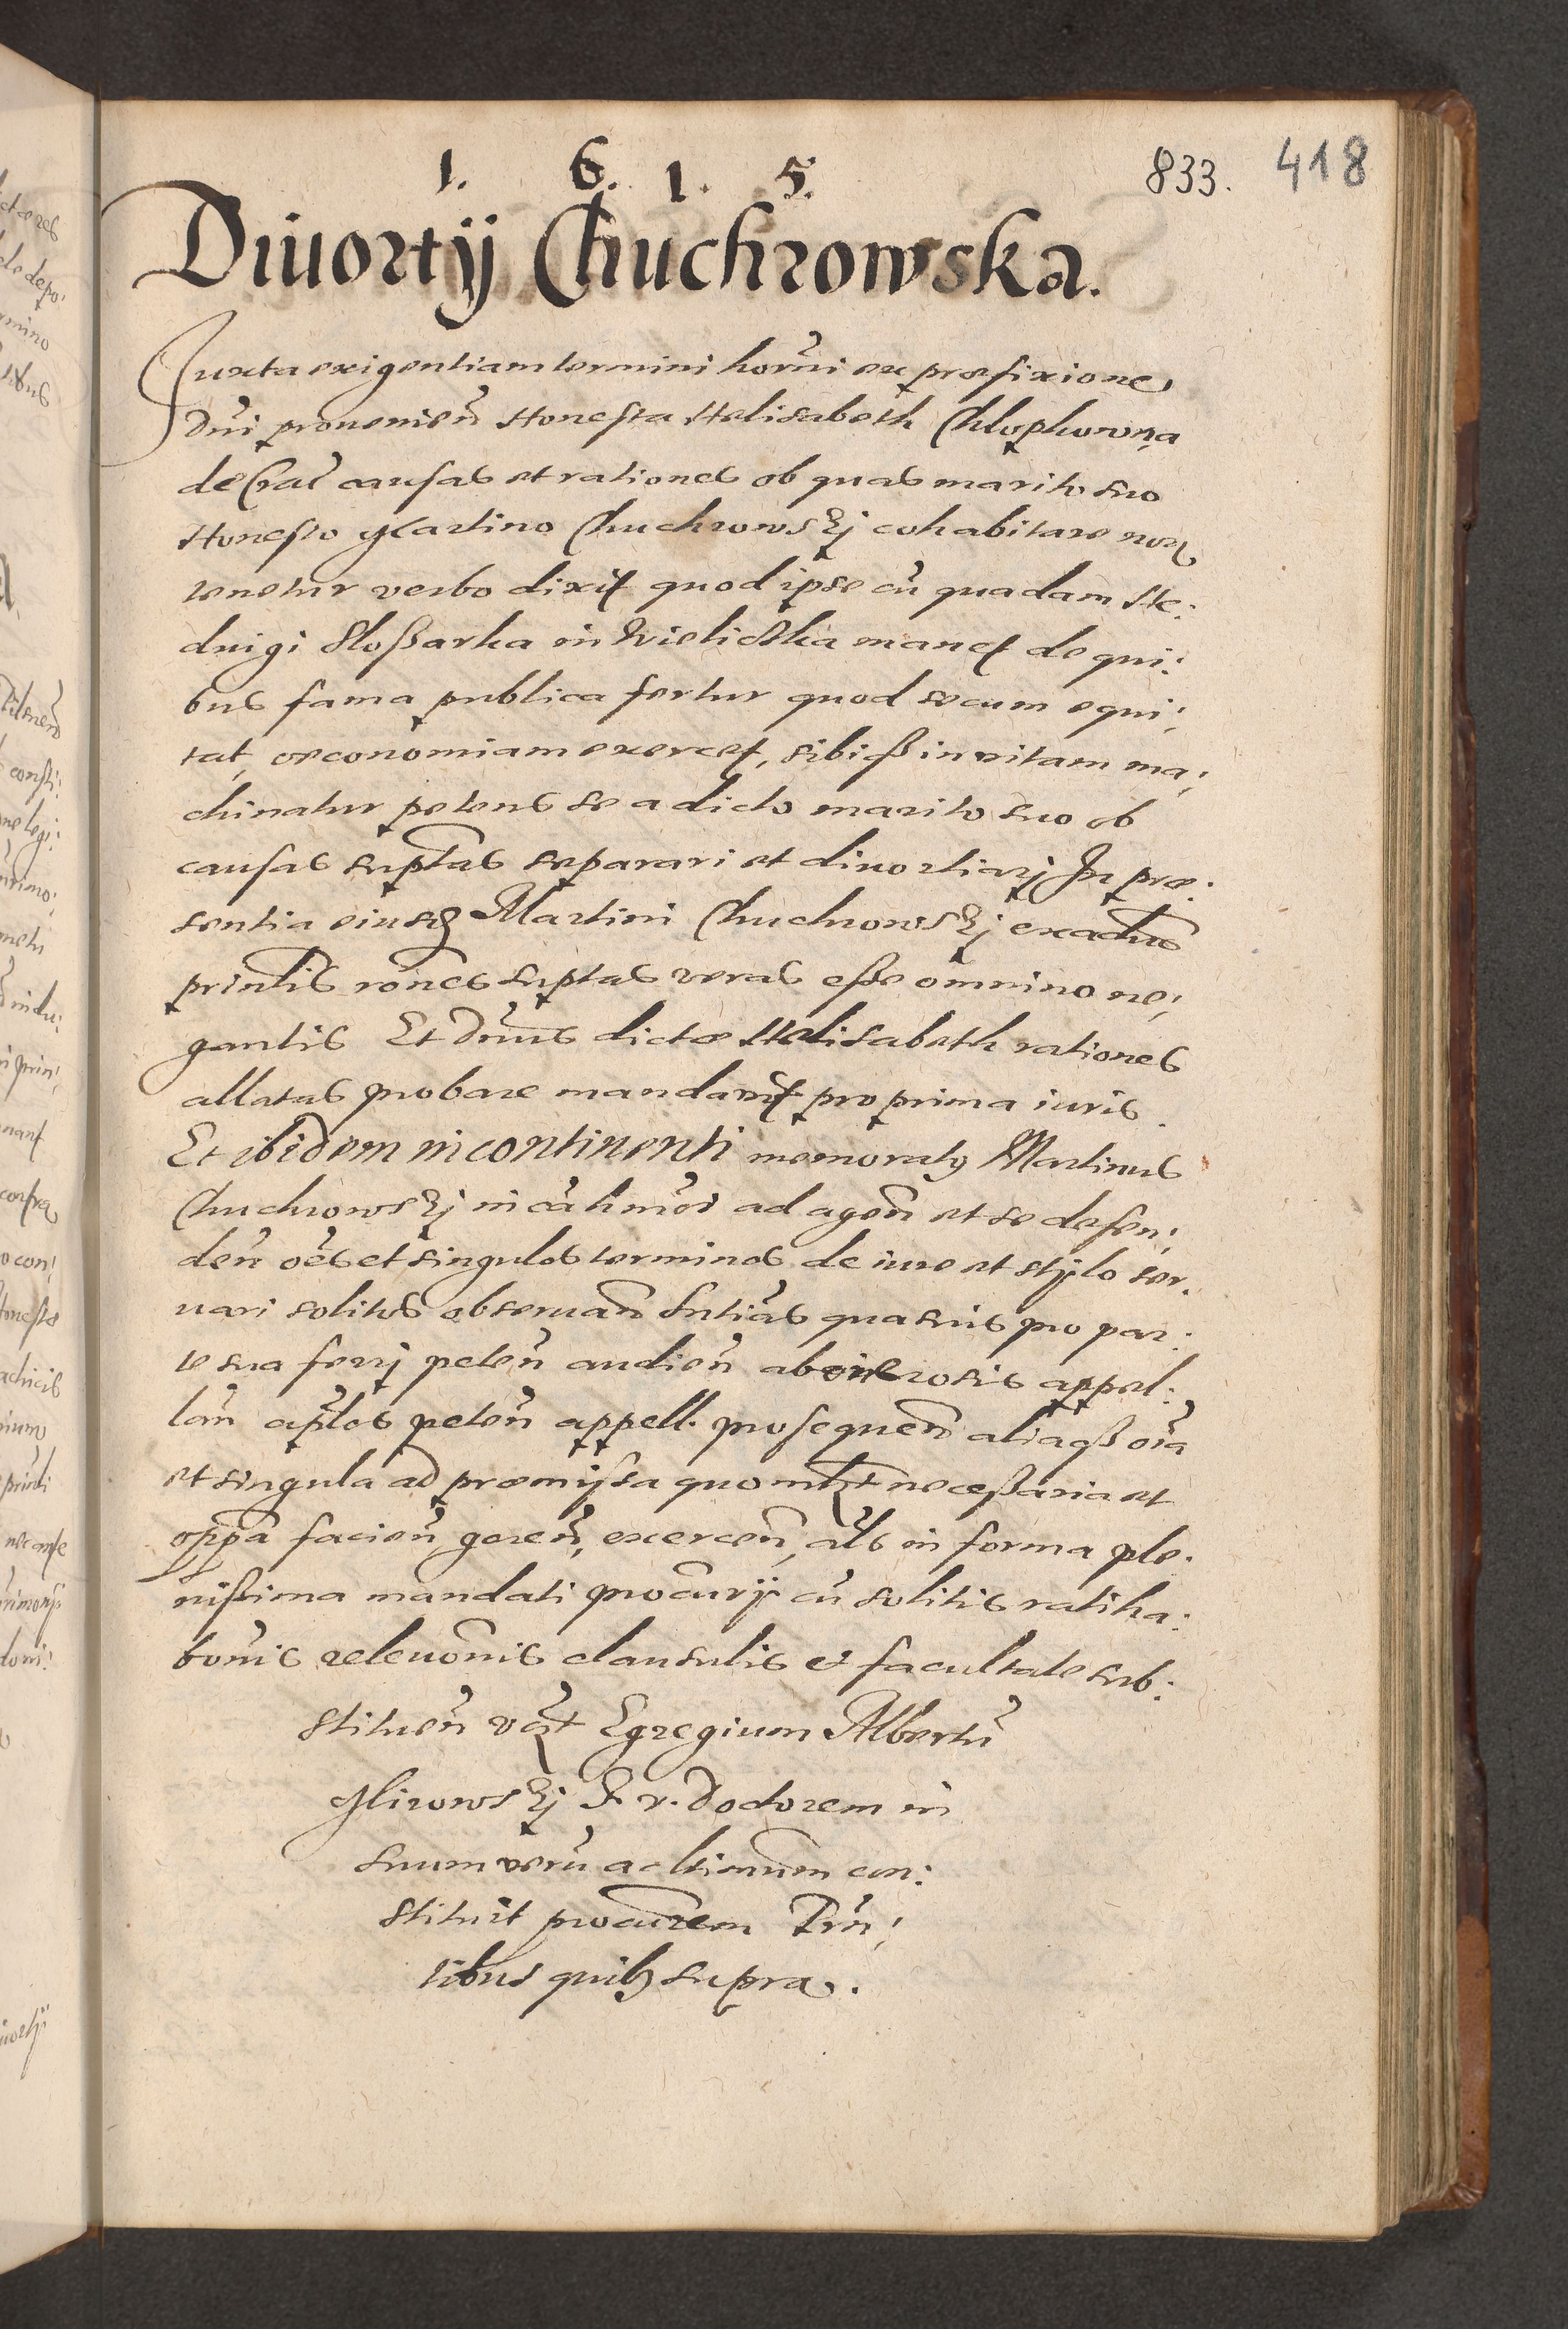 1. 6. 1. 5. 833. 418
Diuortij Chuchrowska.
Iuxta exigentiam termini horñi ex præfixione
Dñi prouenieñ Honesta Helisabeth Chlophowna
de Crac̃ causas et rationes ob quas marito suo
Honesto Martino Chuchrowskj cohabitare non
tenetur verbo dixit quod ipse cũ quadam He:
duigi Sloßarka in Wieliczka manet de qui:
bus fama publica fertur quod secum equi:
tat, œconomiam exercet, sibiqß in vitam ma:
chinatur petens se a dicto marito suo ob
causas suptas separari et diuortiarj In præ:
sentia eiusd Martini Chuchrowskj ex aduo
printis rões suptas veras esse omnino ne:
gantis Et Dnus dictæ Helisabeth rationes
allatas probare mandauit pro prima iuris.
Et ibidem in continenti memoratq Martinus
Chuchrowskj in cã hmõi ad ageñ et se defen:
deñ oẽs et singulos terminos de iure et stylo ser:
uari solitos obseruañ sntias quasuis pro par:
te sua ferrj peteñ audieñ ab onerosis appel:
lañ aplos peteñ appell. prosequeñ aliaqß oia
et singula ad præmissa quomlt necessaria et
oppa facieñ gereñ, exerceñ, als in forma ple:
nissima mandati procurij cũ solitis ratiha:
bonis releuonis clausulis et facultate sub:
stitueñ Egregium Albertũ
Glirowskj I. v. Doctorem in
suum verũ ac ltimum con:
stituit procurem Prñ:
tibus quibq supra.